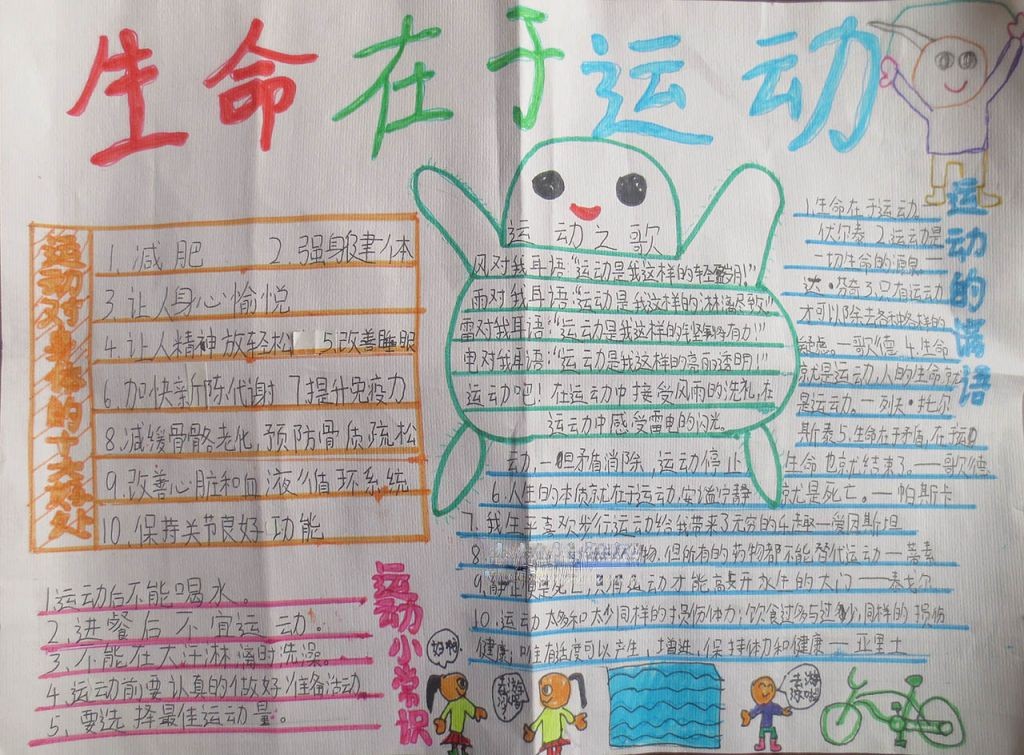 生命在于运动
运动对身体的十大好处
1、减肥 2、强身健体
3、让人身心愉悦
4、让人精神放轻松 5、改善睡眠
6、加快新陈代谢 7提升免疫力
8、减缓骨骼老化,预防骨质疏松
9、改善心脏和血液循环系统
10、保持关节良好功能
运动之歌
风对我耳语:“运动是我这样的轻盈!”
雨对我耳语:“运动是我这样的淋漓尽致”
雷对我耳语:“运动是我这样的铿锵有力!”
电对我耳语:“运动是我这样的亮丽透明!”
运动吧!在运动中接受风雨的洗礼,在
运动中感受雷电的闪光。
运动的谚语
1.生命在于运动。
伏尔泰 2.运动是
一切生命的源泉一
达·芬奇 3.只有运动
才可以除去各种各样的
疑虑。一歌德 4.生命
就是运动,人的生命就
是运动。一列夫·托尔
斯泰 5.生命在于矛盾,在于运
动,一旦矛盾消除,运动停止 生命也就结束了。——歌德
6.人生的本质就在于运动,安谧宁静 就是死亡。—帕斯卡
7.我生平喜欢步行运动给我带来了无穷的乐趣—爱因斯坦
8. 物,但所有的药物都不能替代运动—蒂素
9.静止便是死亡,只有运动才能敲开永生的大门——泰戈尔
10.运动太多和太少同样的损伤体力;饮食过多与过少,同样的损伤
健康;唯有适度可以产生,增进,保持体力和健康— 亚里士
运动小常识
1.运动后不能喝水。
2.进餐后不宜运动。
3.不能在大汗淋漓时洗澡。
4.运动前要认真的做好准备活动
5、要选择最佳运动量。
好啊
去游泳
去游泳啦